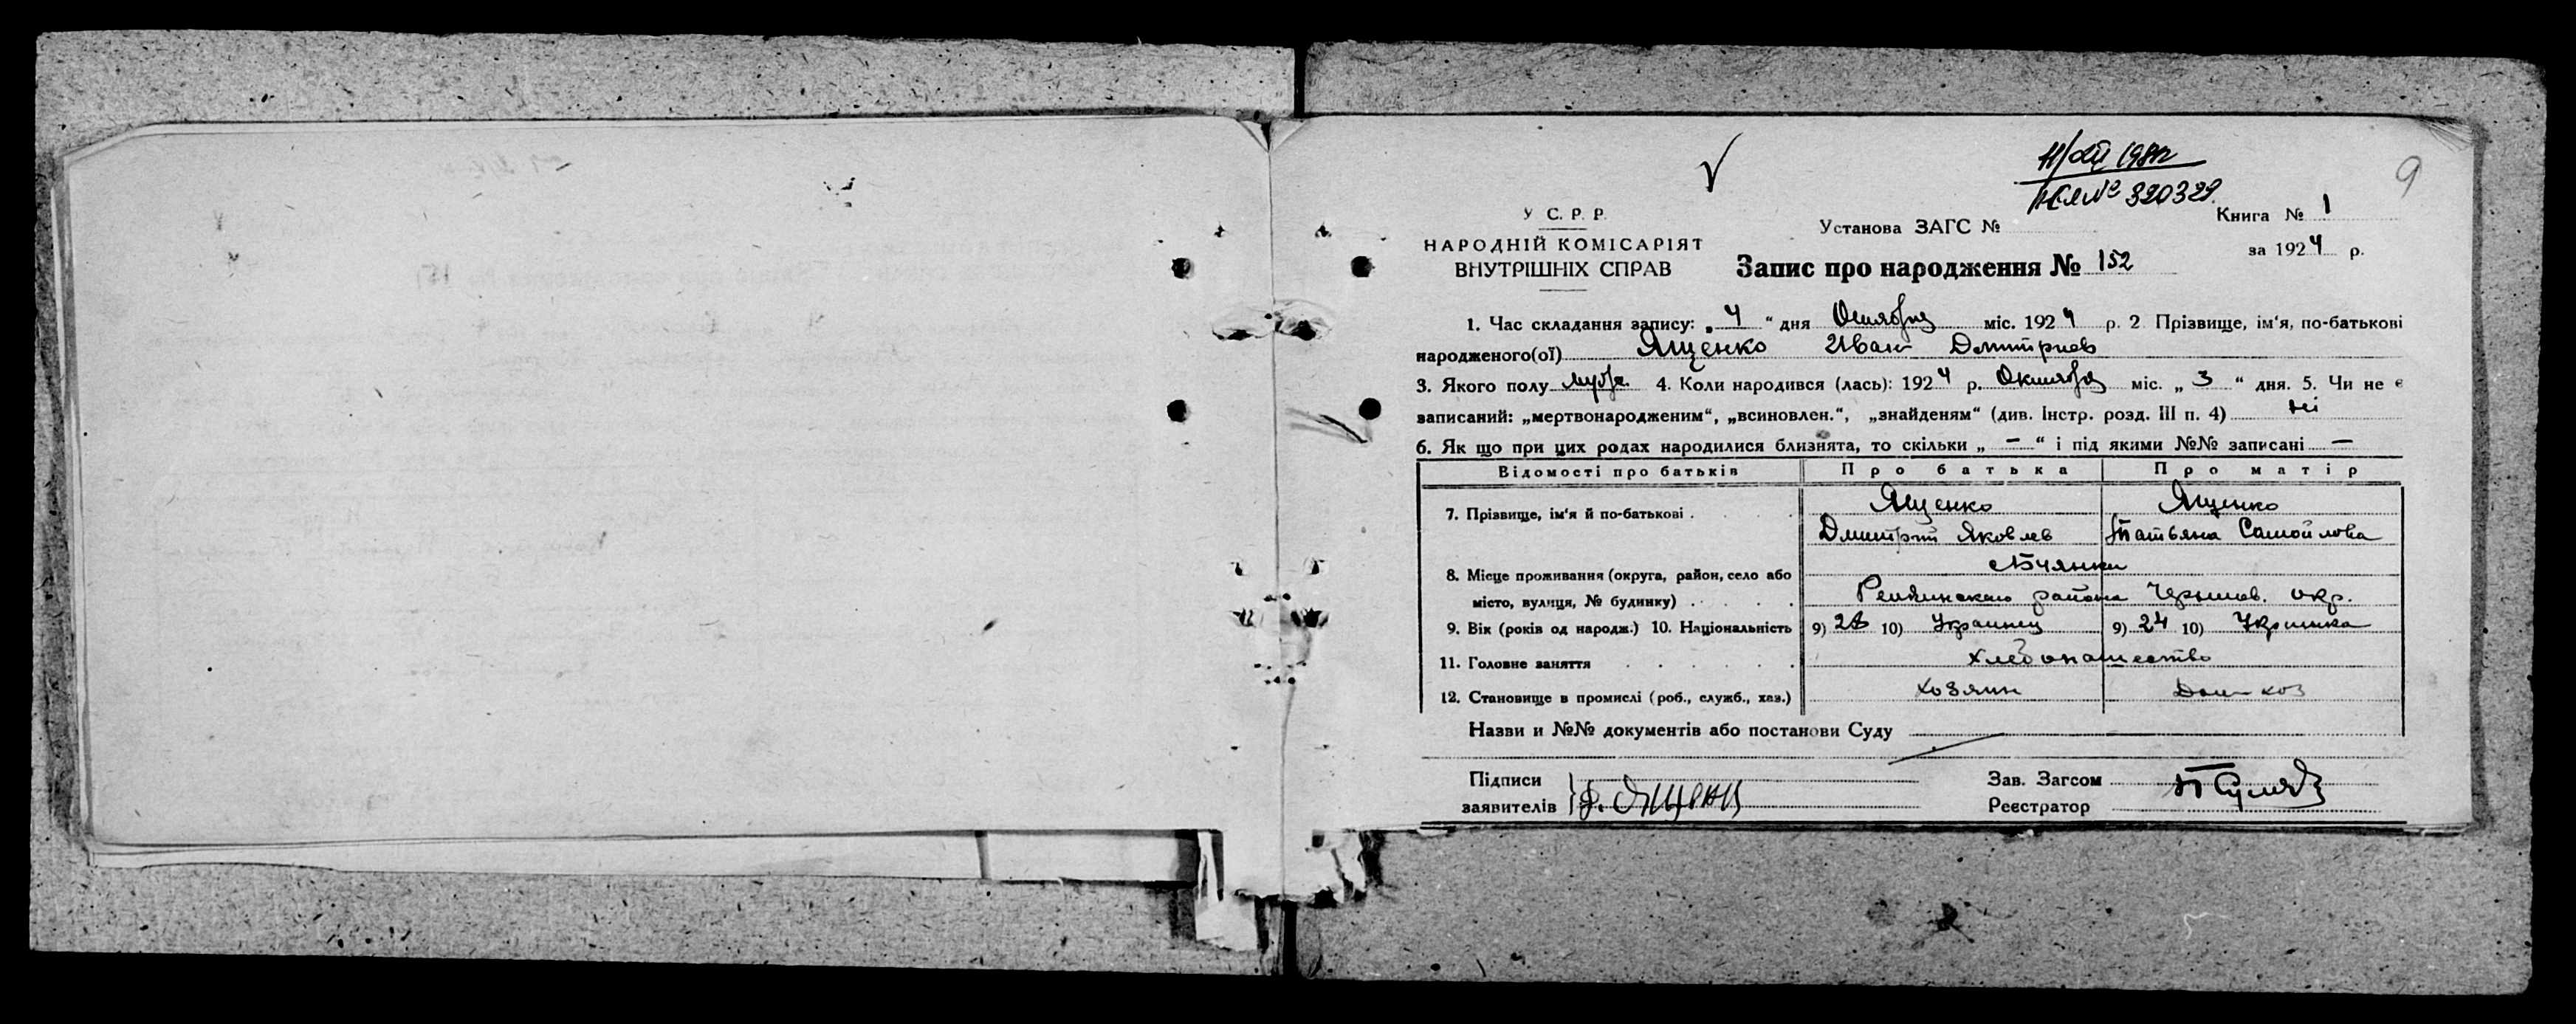 9
НЯ № 320329
У С. Р. Р.
НАРОДНІЙ КОМІСАРІЯТ
ВНУТРІШНІХ СПРАВ
Установа ЗАГС №
Книга № 1
за 1924 р.
Запис про народження № 152
1. Час складання запису: „ 4 “ дня Октября міс. 1924 р. 2 Прізвище, ім'я, по-батькові
народженого(ої) Ященко Иван Дмитриев
3. Якого полу муж. 4. Коли народився (лась): 1924 р. Октября міс. „ 3 “ дня. 5. Чи не є
записаний: „мертвонародженим“, „всиновлен.“, „знайденям“ (див. Інстр. розд. III п. 4) ні
6. Як що при цих родах народилися близнята, то скільки „ — “ і під якими №№ записані —
Відомості про батьків Про батька Про матір
7. Прізвище, ім'я й по-батькові Ященко Ященко
Дмитрий Яковлев Татьяна Самойлова
8. Місце проживання (округа, район, село або
місто, вулиця, № будинку) Репкинского района Черниг. окр.
9. Вік (років од народж.) 10. Національність 9) 28 10) Украинец 9) 24 10) Украинка
11. Головне заняття хлебопашество
12. Становище в промислі (роб., служб., хаз.) хозяин Дом хоз
Назви и №№ документів або постанови Суду
Підписи
заявителів Д. Ященко
Зав. Загсом
Реєстратор